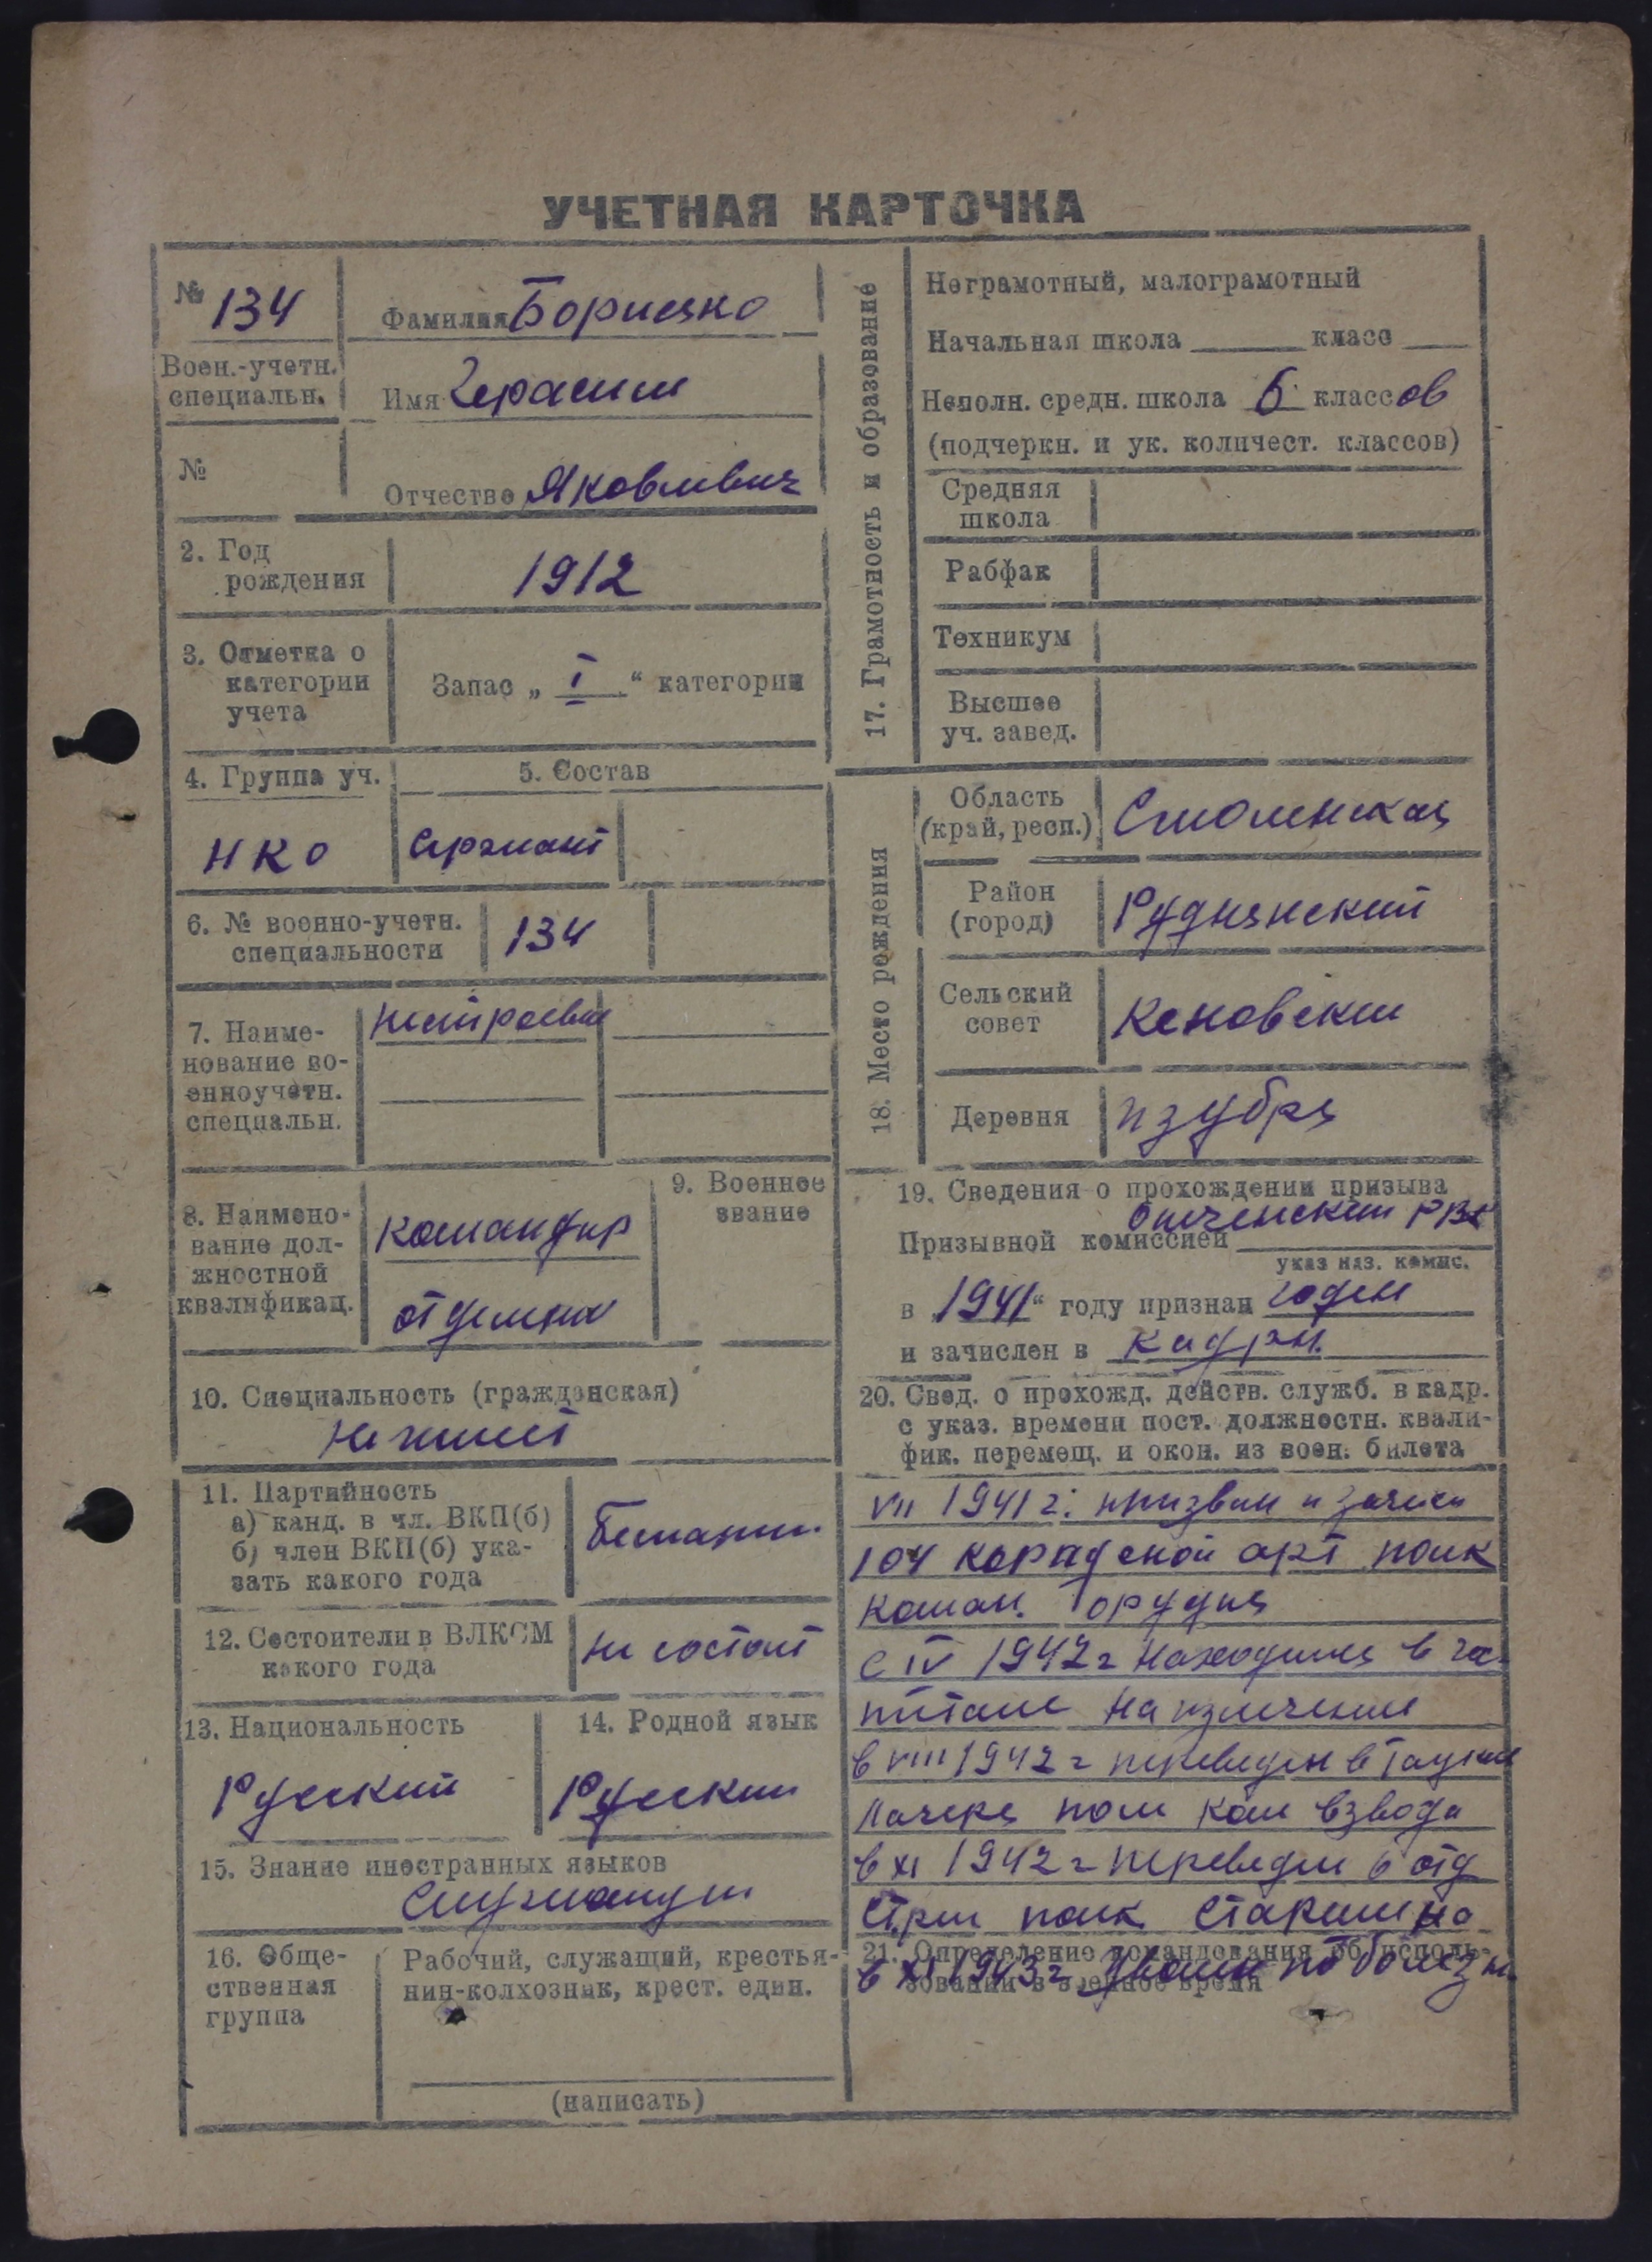 УЧЕТНАЯ КАРТОЧКА
№ 134
Фамилия Борисенко
Воен.-учетн.
специальн.
Имя Герасим
№
Отчество Яковлевич
2. Год
рождения
1912
3. Отметка о
категории
учета
Запас „ I “ категории
4. Группа уч.
5. Состав
НКО
Сержант
6. № военно-учетн.
специальности
134
7. Наиме-
нование во-
енноучетн.
специальн.
8. Наимено-
вание дол-
жностной
квалификац.
командир
отделения
9. Военное
звание
10. Специальность (гражданская)
11. Партийность
а) канд. в чл. ВКП(б)
б) член ВКП(б) ука-
зать какого года
Беспарти.
12. Состоител и в ВЛКСМ
какого года
Не состоит
13. Национальность
Русский
14. Родной язык
Русский
15. Знание иностранных языков
16. Обще-
ственная
группа
Рабочий, служащий, крестья-
нин-колхозник, крест. един.
(написать)
17. Грамотность и образование
Неграмотный, малограмотный
Начальная школа класс
Неполн. средн. школа 6 классов
(подчеркн. и ук. количест. классов)
Средняя
школа
Рабфак
Техникум
Высшее
уч. завед.
18. Место рождения
Область
(край, респ.)
Смоленская
Район
(город)
Руднянский
Сельский
совет
Деревня
Изубря
19. Сведения о прохождении призыва
Призывной комиссией РВК
указ наз. комис.
в 1941“ году признан годен
и зачислен в кадры.
20. Свед. о прохожд. действ. служб. в кадр.
с указ. времени пост. должностн. квали-
фик. перемещ. и окон. из воен. билета
VII 1941 г. призван и зачисл
104 арт полк
Коман. орудия
С IV 1942 г находился в гос
питале на излечении
в VIII 1942 г переведен в
лагеря пом ком взвода
в XI 1942 г переведен 6 отд
стрел полк старшина
21. Определение командования об исполь-
зовании в военное время
в XI 1943 г уволен по болезн.